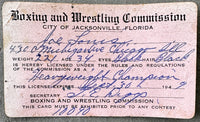 Boxing and Wrestling Commission
CITY OF JACKSONVILLE, FLORIDA
Joe Louis
4300 Michigan Ave Chicago Ill
WEIGHT 221 AGE 34 Black
IS HEREBY LICENSED UNDER THE RULES AND REGULATIONS
OF THE COMMISSION AS A
Heavyweight Champion
THIS LICENSE EXPIRES Sept 30 194
SECRETARY
BOXING AND WRESTLING COMMISSION
THIS CARD MUST BE EXHIBITED PRIOR TO ANY CONTEST